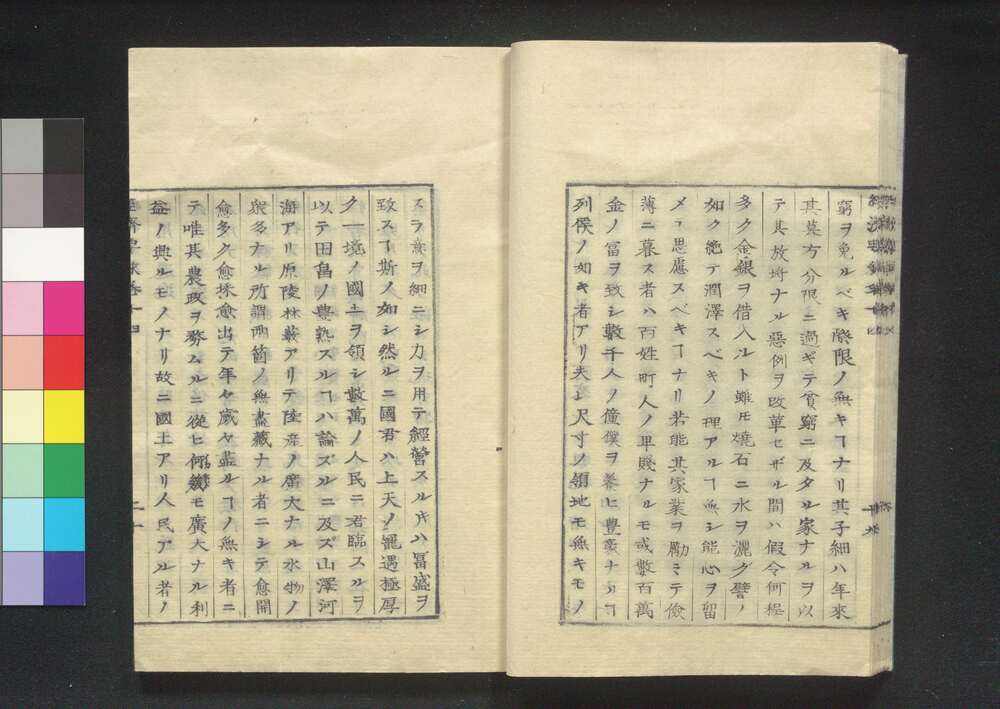 窮ヲ免ルベキ際限ノ無キヿナリ其子細ハ年來
其墓方分限ニ過ギテ貧窮ニ及タル家ナルヲ以
テ其放埓ナル惡例ヲ改革セザル間ハ假令何程
多ク金銀ヲ借入ルト雖モ燒石ニ水ヲ灑グ譬ノ
如ク絶テ潤澤スベキノ理アルヿ無シ能心ヲ留
メテ思慮スベキヿナリ若能其家業ヲ勵ミテ儉
薄ニ暮ス者ハ百姓町人ノ卑賤ナルモ或數百萬
金ノ冨ヲ致シ數千人ノ僮僕ヲ養ヒ豊饒ナルヿ
列侯ノ如キ者アリ夫レ尺寸ノ領地モ無キモノ
スラ意ヲ細ニシ力ヲ用テ經營スル片ハ冨盛ヲ
致スヿ斯ノ如シ然ルニ國君ハ上天ノ寵遇極厚
ク一境ノ國土ヲ領シ數萬ノ人民ニ君臨スルヲ
以テ田畠ノ豊熟スルヿハ論ズルニ及ズ山澤河
海アリ原陵林藪アリテ陸産ノ廣大ナル水物ノ
衆多ナル所謂兩箇ノ無盡藏ナル者ニシテ愈開
愈多ク愈採愈出テ年々歳々盡ルヿノ無キ者ニ
テ唯其農政ヲ務ムルニ從ヒ何幾モ廣大ナル利
益ノ興ルモノナリ故ニ國土アリ人民アル者ノ